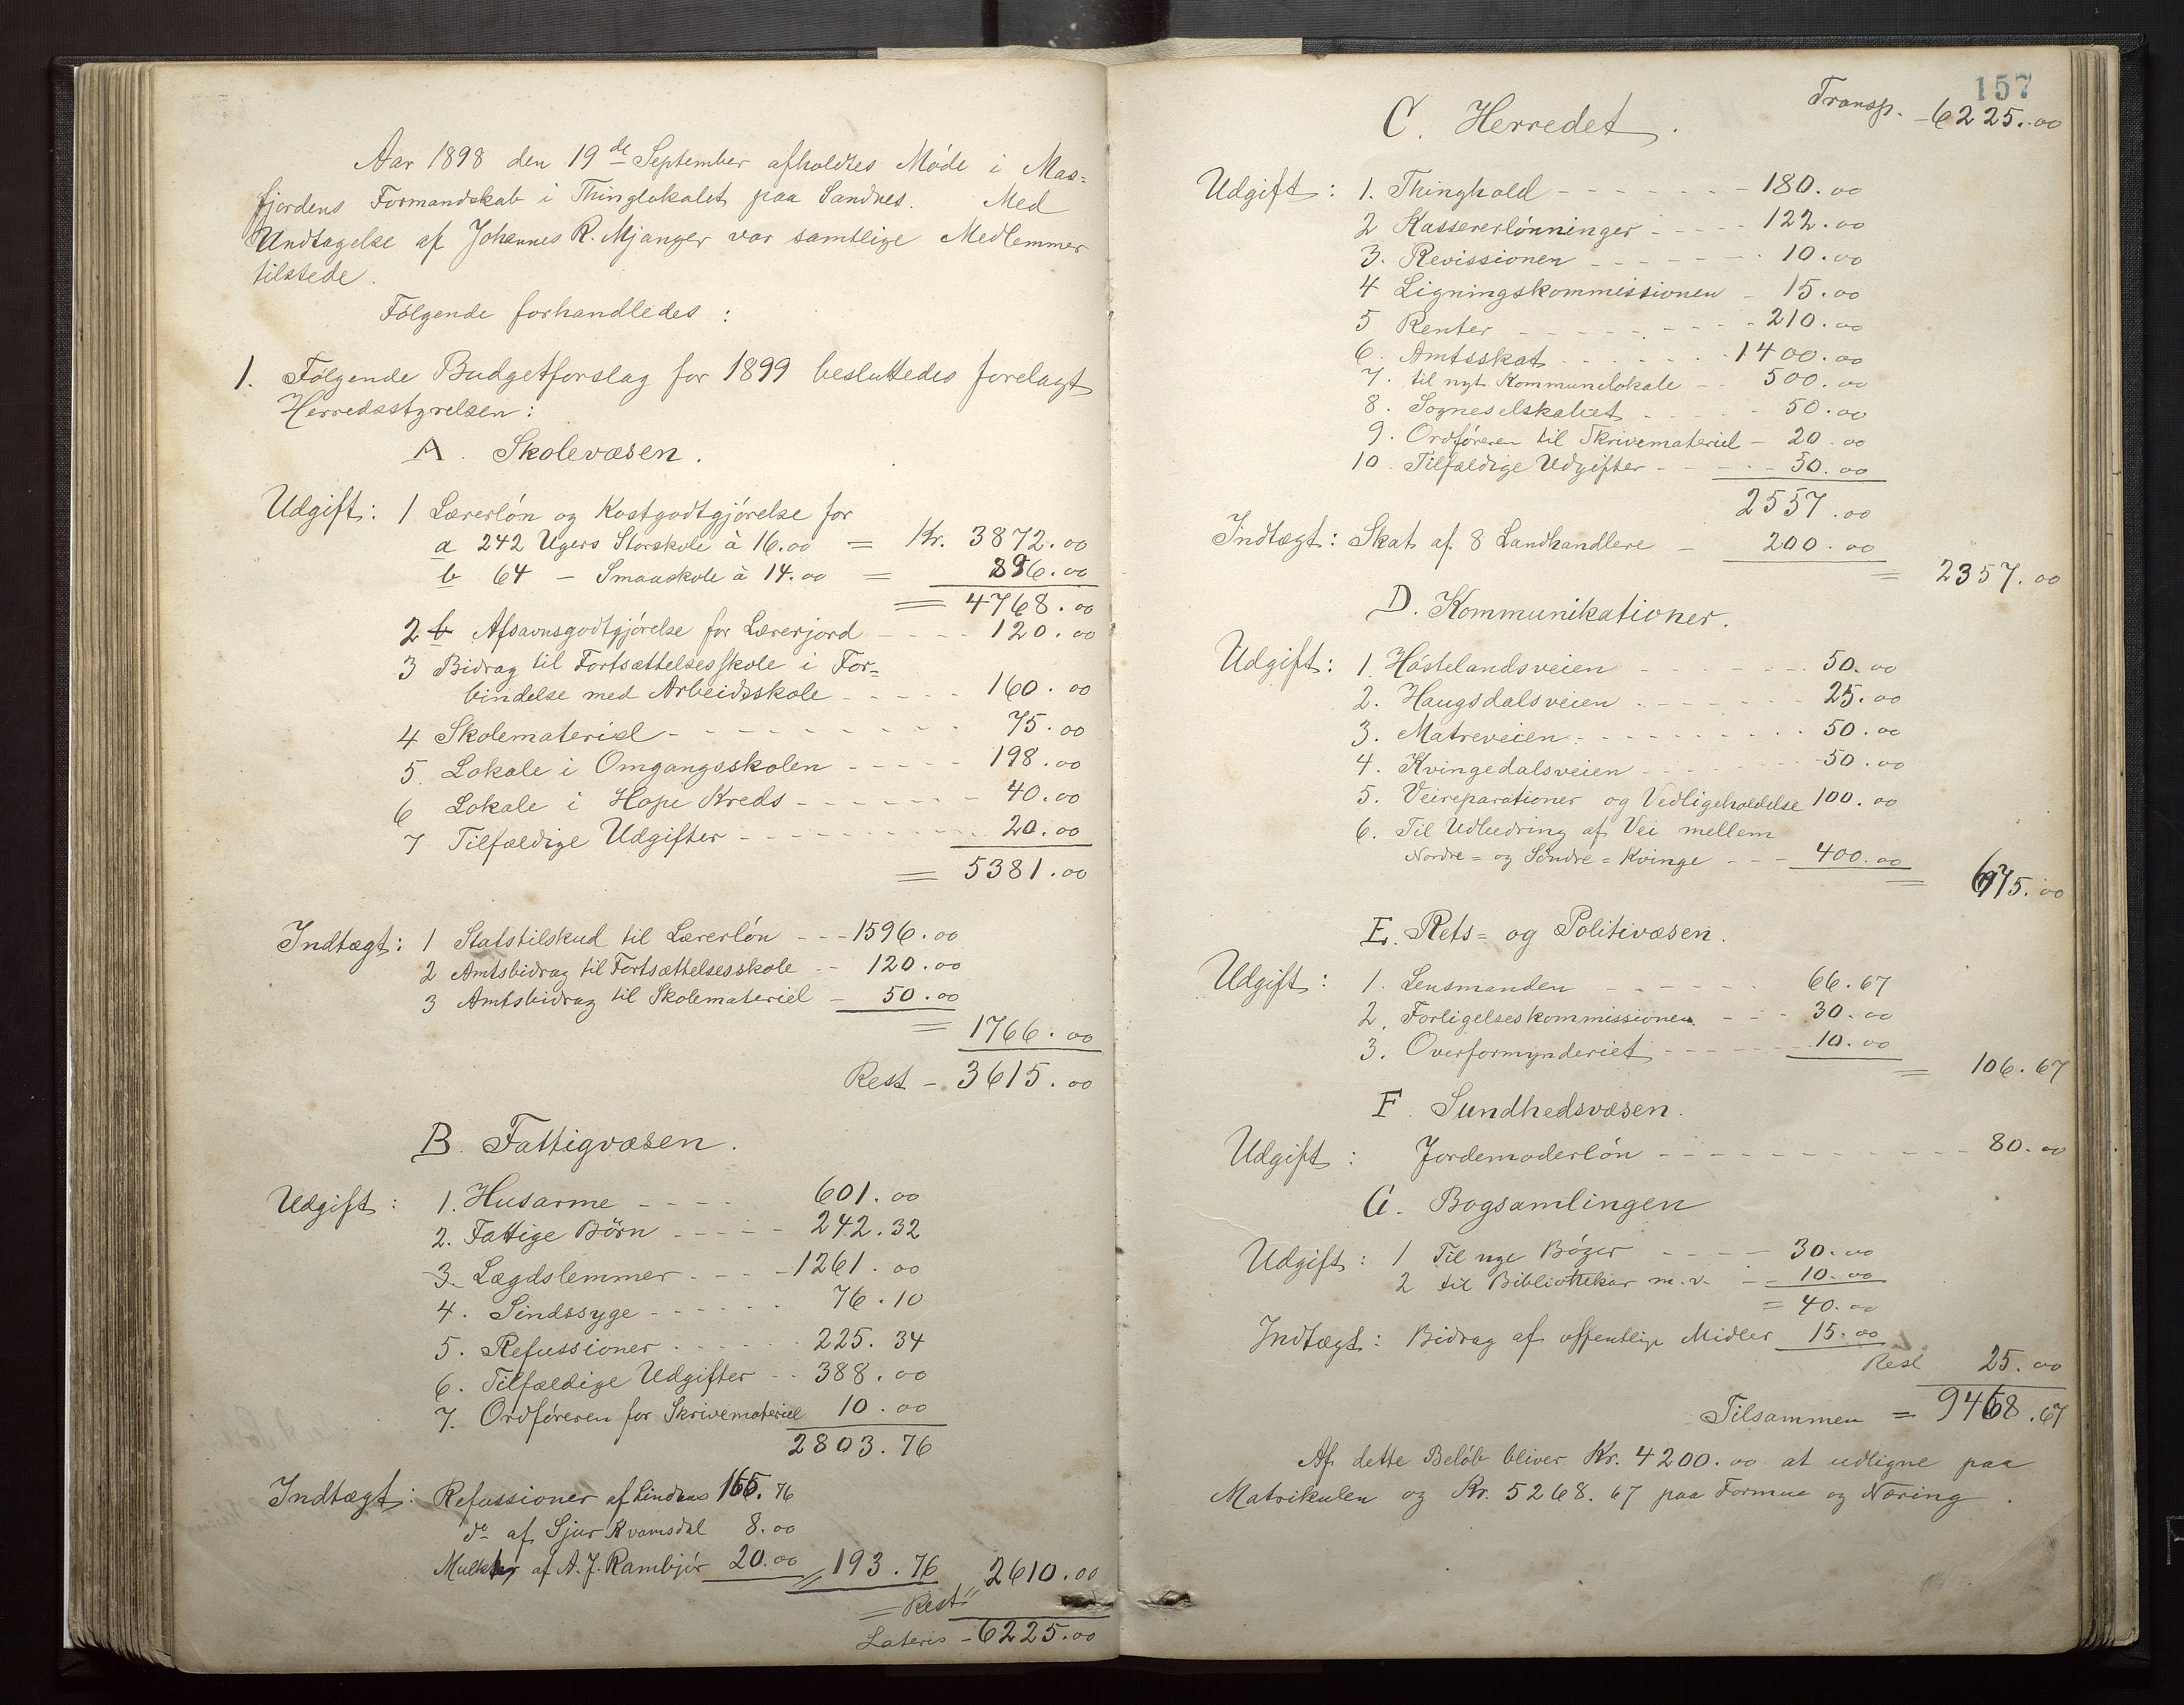 Aar 1898 den 19de September afholdtes Møde i Mas=
fjordens Formandskab i Thinglokalet paa Sandnes. Med
Undtagelse af Johannes R. Mjanger var samtlige Medlemmer
tilstede.
Følgende forhandledes :
1. Følgende Budgetforslag for 1899 besluttedes forelagt
Herredsstyrelsen :
A. Skolevæsen.
Udgift : 1 Lærerløn og Kostgodtgjørelse for
a 242 Ugers Storskole à 16.00 = Kr. 3872.00
b 64 — Smaaskole à 14.00 = 896.00
= 4768.00
2 Afsavnsgodtgjørelse for Lærerjord - - - - 120.00
3 Bidrag til Fortsættelsesskole i For=
bindelse med Arbeidsskole - - - - - 160.00
4 Skolemateriel - - - - - - - - - 75.00
5 Lokale i Omgangsskolen - - - - - 198.00
6 Lokale i Hope Kreds - - - - - - - 40.00
7 Tilfældige Udgifter - - - - - - - - 20.00
= 5381.00
Indtægt : 1 Statstilskud til Lærerløn - - - 1596.00
2 Amtsbidrag til Fortsættelsesskole - - 120.00
3 Amtsbidrag til Skolemateriel - 50.00
= 1766.00
Rest - 3615.00
B. Fattigvæsen.
Udgift : 1. Husarme - - - - 601.00
2. Fattige Børn - - - - - 242.32
3. Lægdslemmer - - - - 1261.00
4. Sindssyge - - - - - - 76.10
5. Refussioner - - - - - - 225.34
6. Tilfældige Udgifter - - 388.00
7. Ordføreren for Skrivemateriel 10.00
2803.76
Indtægt : Refussioner af Lindaas 165.76
do af Sjur Kvamsdal 8.00
af A. J. Rambjør 20.00 = 193.76 2610.00
= Rest
Lateris - 6225.00
157
C. Herredet. Transp. - 6225.00
Udgift : 1. Thinghold - - - - - - - 180.00
2 Kassererlønninger - - - - - 122.00
3. Revissionen - - - - - - - 10.00
4 Ligningskommissionen - 15.00
5 Renter - - - - - - - - - 210.00
6. Amtsskat - - - - - - - 1400.00
7. til nyt Kommunelokale - - 500.00
8. Sogneselskabet - - - - - 50.00
9. Ordføreren til Skrivemateriel - 20.00
10. Tilfældige Udgifter - - - - - 50.00
2557.00
Indtægt : Skat af 8 Landhandlere - 200.00
= 2357.00
D. Kommunikationer.
Udgift : 1. Høstelandsveien - - - - - - - 50.00
2. Haugsdalsveien - - - - - - - 25.00
3. Matreveien - - - - - - - - - 50.00
4. Kvingedalsveien - - - - - - - 50.00
5. Veireparationer og Vedligeholdelse 100.00
6. Til Udbedring af Vei mellem
Nordre= og Søndre=Kvinge - - - 400.00
= 675.00
E. Rets= og Politivæsen.
Udgift : 1. Lensmanden - - - - - - 66.67
2. Forligelseskommissionen - - - 30.00
3. Overformynderiet - - - - - - 10.00
= 106.67
F. Sundhedsvæsen.
Udgift : Jordemoderløn - - - - - - - - - - - 80.00
G. Bogsamlingen
Udgift : 1 Til nye Bøger - - - - - 30.00
2 til Bibliothekar m. v. - - 10.00
= 40.00
Indtægt : Bidrag af offentlige Midler 15.00
Rest 25.00
Tilsammen = 9468.67
Af dette Beløb bliver Kr. 4200.00 at udligne paa
Matrikulen og Kr. 5268.67 paa Formue og Næring.